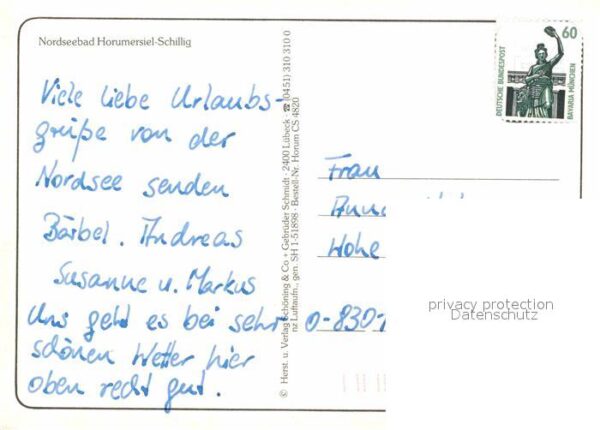 Nordseebad Horumersiel-Schillig
Viele liebe Urlaubs-
grüße von der
Nordsee senden
Bärbel. Andreas
Susanne u. Markus
Uns geht es bei sehr
schönen Wetter hier
oben recht gut.
© Herst. u. Verlag Schöning & Co + Gebrüder Schmidt · 2400 Lübeck · ☎ (0451) 310 310 0
nz Luftaufn., gen. SH 1-51898 · Bestell-Nr. Horum CS 4820
60
DEUTSCHE BUNDESPOST
BAVARIA MÜNCHEN
Frau
Hohe
O-830
privacy protection
Datenschutz